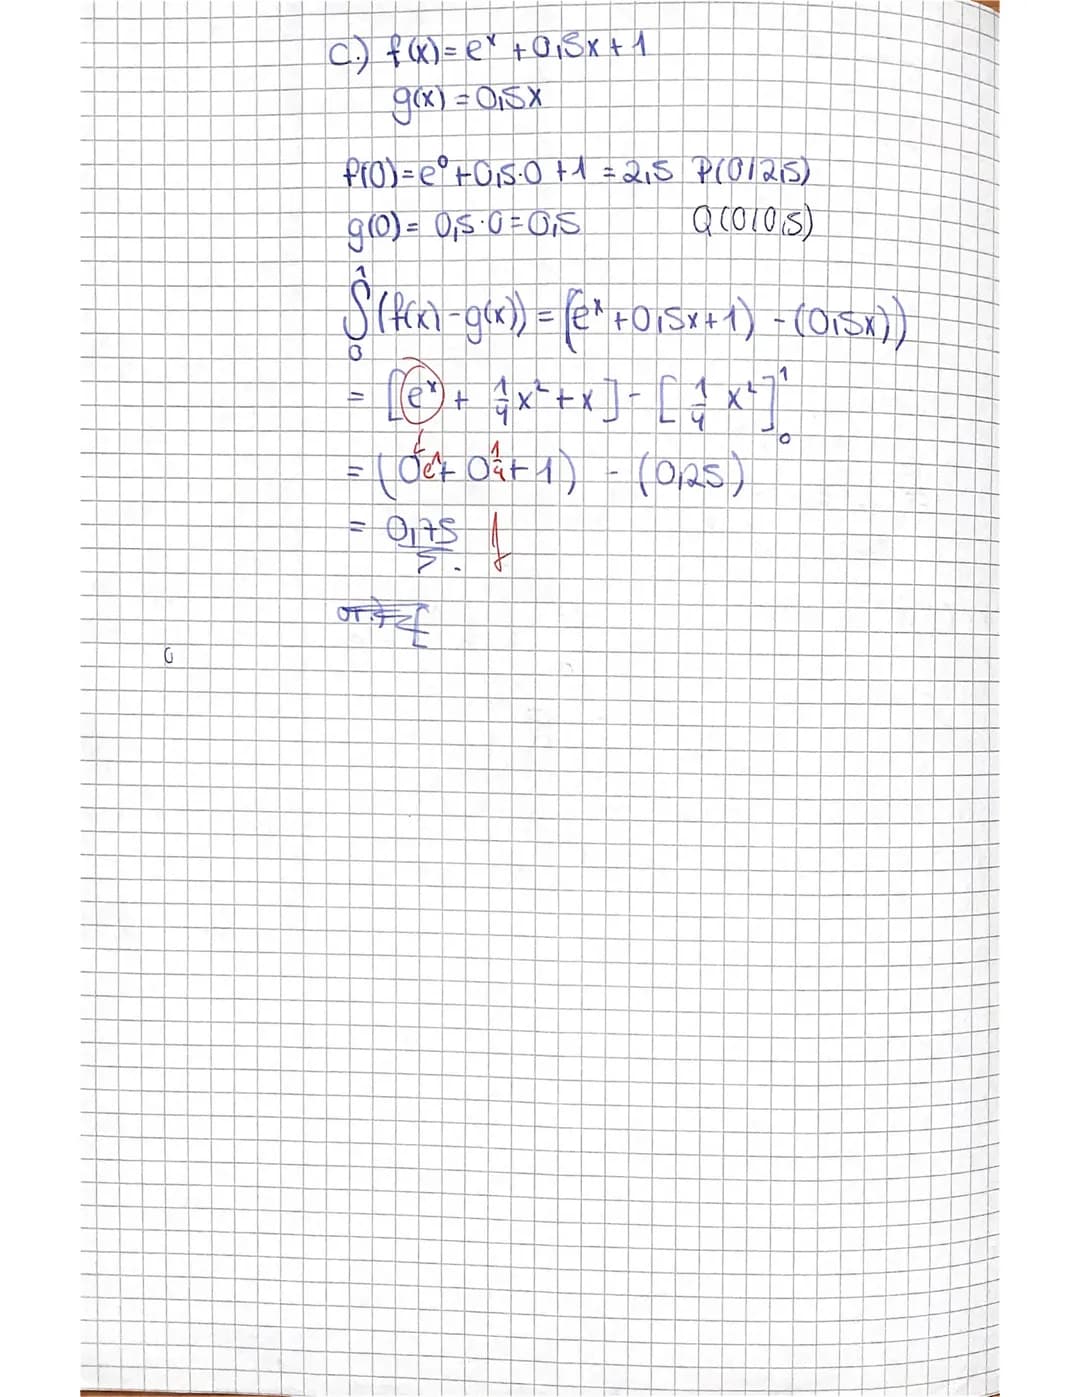 c.) f(x) = e^x + 0,5x + 1
g(x) = 0,5x
f(0) = e^0 + 0,5·0 + 1 = 2,5 P(0/2,5)
g(0) = 0,5·0 = 0,5 Q(0/0,5)
∫₀¹ (f(x) - g(x)) = (e^x + 0,5x + 1) - (0,5x))
= [e^x + 1/4 x² + x] - [1/4 x²]₀¹
= (0 e^1 + 0 1/4 + 1) - (0,25)
= 0,75 f